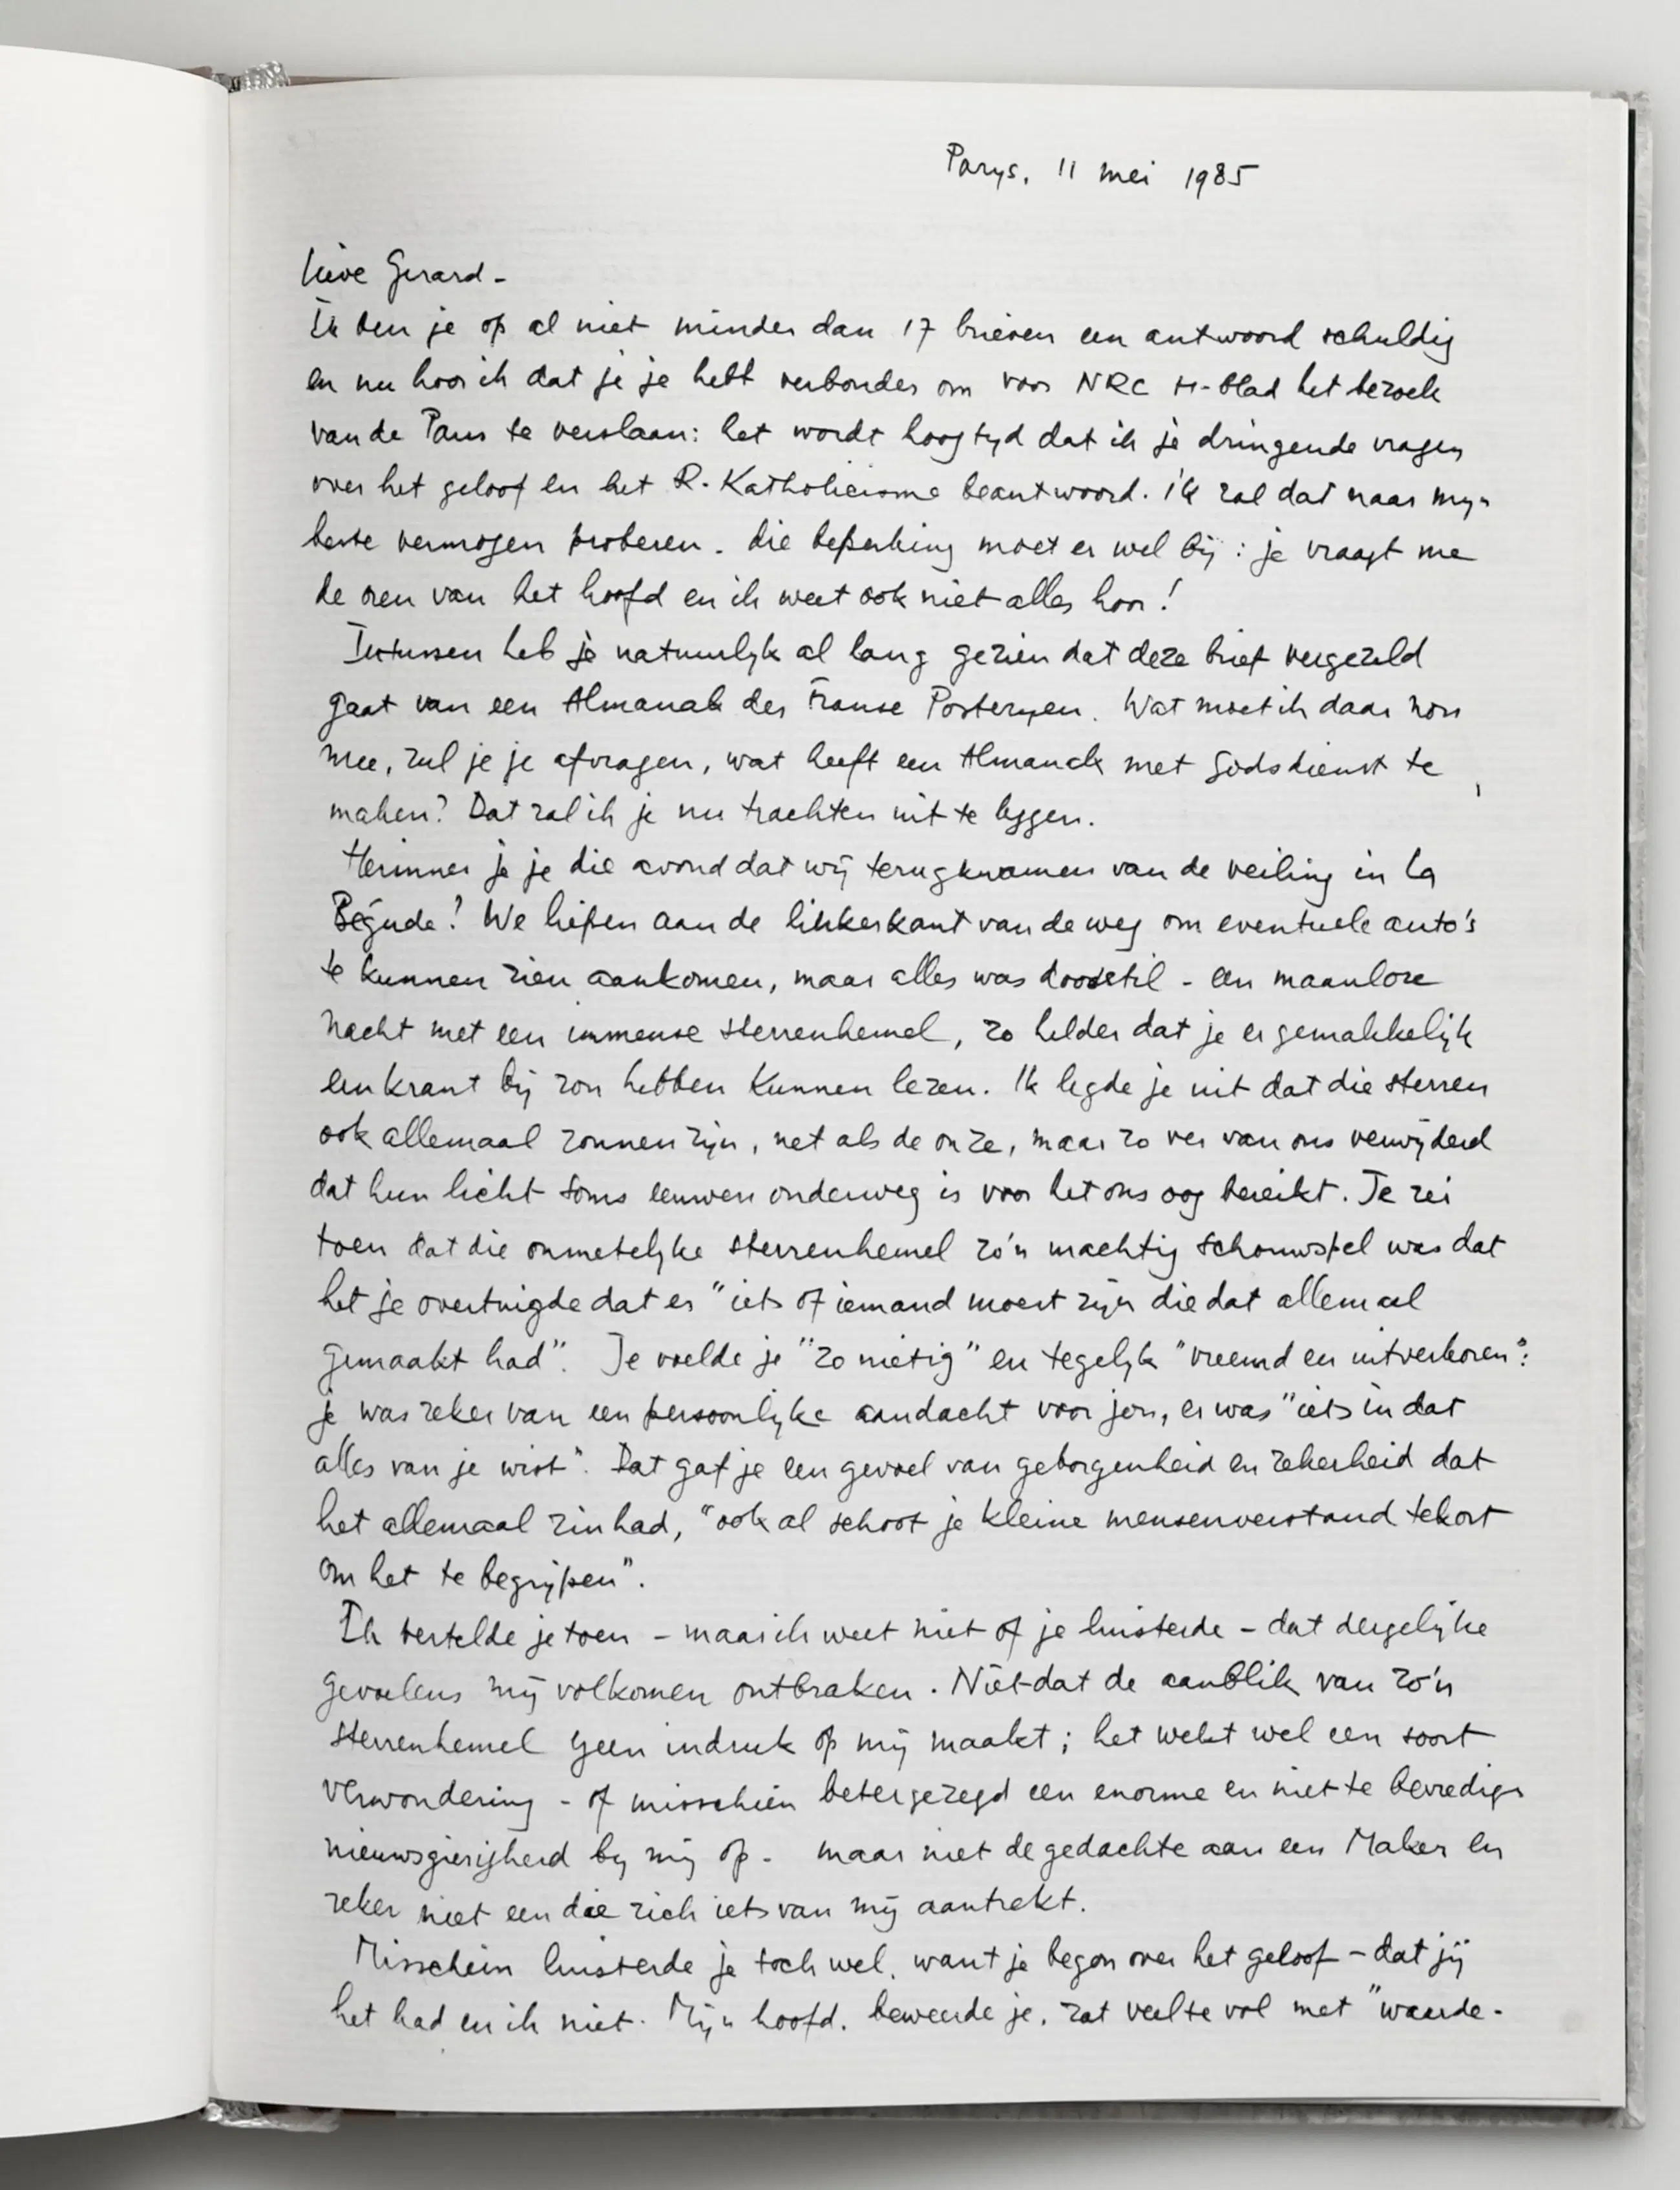 Parys, 11 mei 1985
Lieve Gerard -
Ik ben je op al niet minder dan 17 brieven een antwoord schuldig
en nu hoor ik dat je je hebt verbonden om voor NRC H-blad het bezoek
van de Paus te verslaan: het wordt hoog tyd dat ik je dringende vragen
over het geloof en het R. Katholicisme beantwoord. Ik zal dat naar myn
beste vermogen proberen - die beperking moet er wel bij: je vraagt me
de oren van het hoofd en ik weet ook niet alles hoor!
Intussen heb je natuurlyk al lang gezien dat deze brief vergezeld
gaat van een Almanak der Franse Posteryen. Wat moet ik daar nou
mee, zul je je afvragen, wat heeft een Almanak met Godsdienst te
maken? Dat zal ik je nu trachten uit te leggen.
Herinner je je die avond dat wij terugkwamen van de veiling in La
Bégude? We liepen aan de linkerkant van de weg om eventuele auto's
te kunnen zien aankomen, maar alles was doodstil - een maanloze
nacht met een immense sterrenhemel, zo helder dat je er gemakkelijk
een krant bij zou hebben kunnen lezen. Ik legde je uit dat die sterren
ook allemaal zonnen zijn, net als de onze, maar zo ver van ons verwijderd
dat hun licht soms eeuwen onderweg is voor het ons oog bereikt. Je zei
toen dat die onmetelyke sterrenhemel zo'n machtig schouwspel was dat
het je overtuigde dat er "iets of iemand moest zijn die dat allemaal
gemaakt had". Je voelde je "zo nietig" en tegelyk "vreemd en uitverkoren":
je was zeker van een persoonlijke aandacht voor jou, er was "iets in dat
alles van je wist". Dat gaf je een gevoel van geborgenheid en zekerheid dat
het allemaal zin had, "ook al schoot je kleine mensenverstand tekort
om het te begrijpen".
Ik vertelde je toen - maar ik weet niet of je luisterde - dat dergelijke
gevoelens mij volkomen ontbraken. Niet dat de aanblik van zo'n
sterrenhemel geen indruk op mij maakt; het wekt wel een soort
verwondering - of misschien beter gezegd een enorme en niet te bevredigen
nieuwsgierigheid by mij op - maar niet de gedachte aan een Maker en
zeker niet een die zich iets van mij aantrekt.
Misschien luisterde je toch wel, want je begon over het geloof - dat jij
het had en ik niet. Mijn hoofd, beweerde je, zat veel te vol met "waarde-